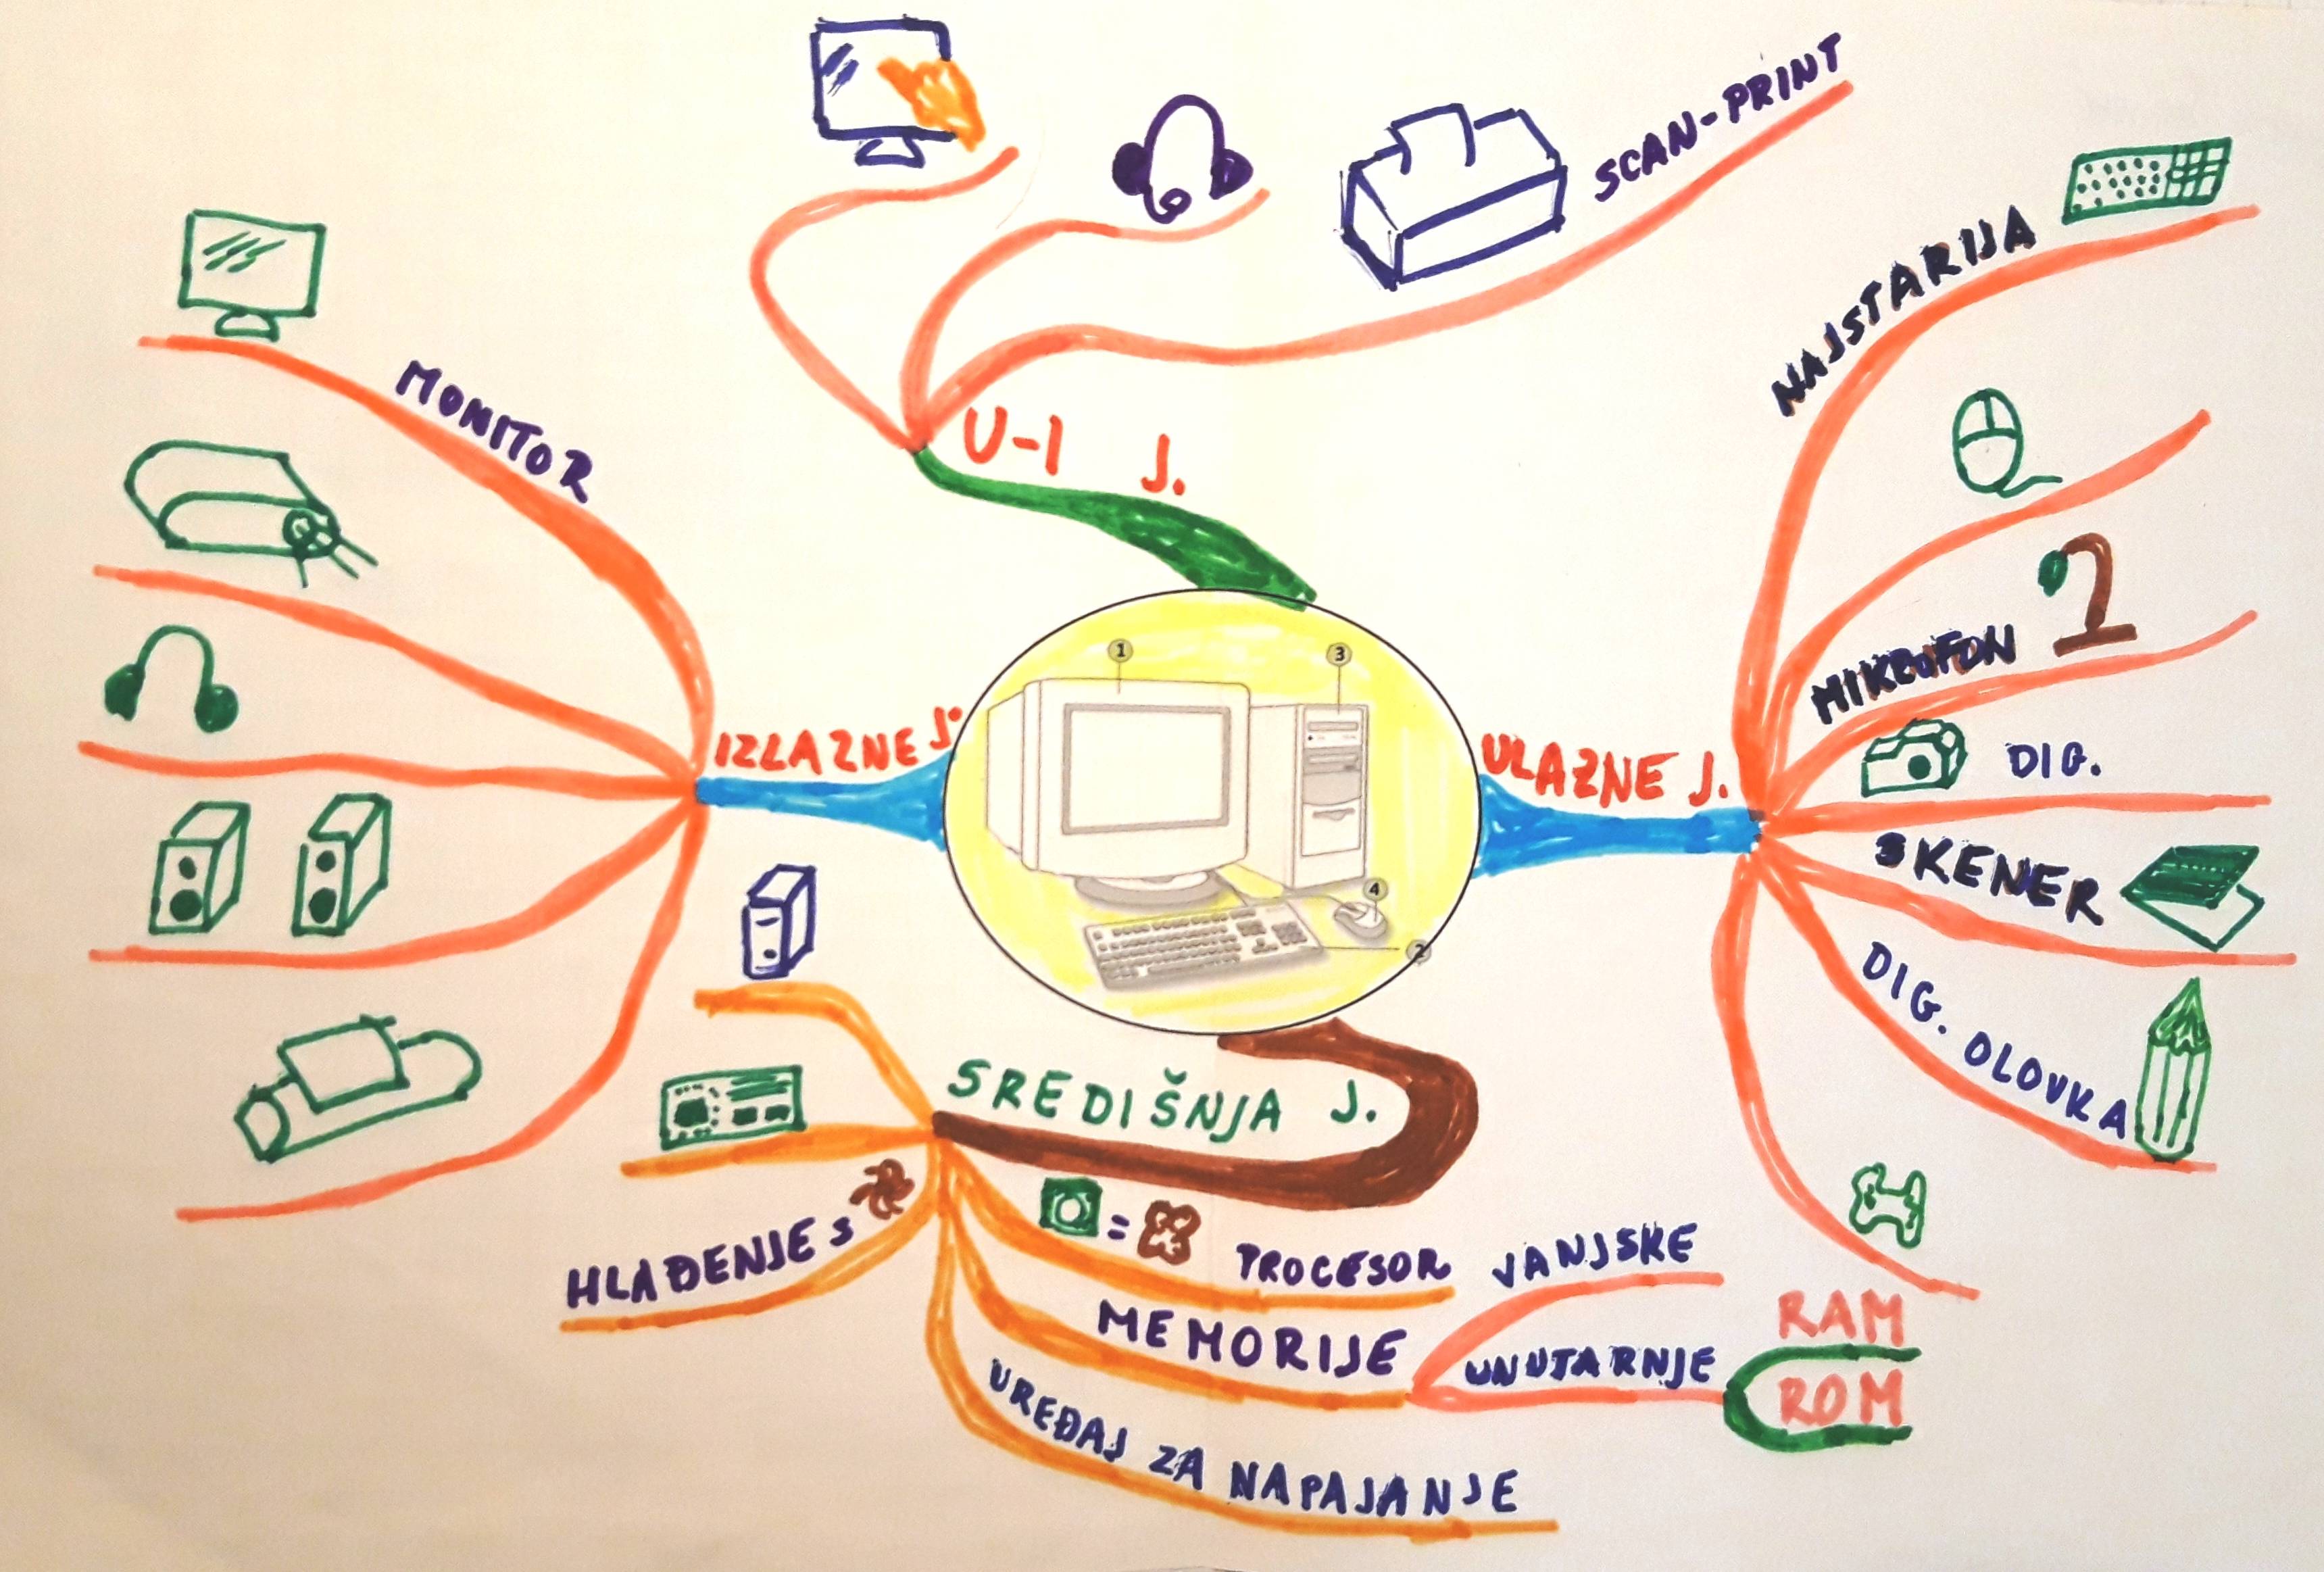 SCAN-PRINT
U-I J.
MONITOR
IZLAZNE J.
1
3
4
2
ULAZNE J.
NAJSTARIJA
MIKROFON
DIG.
SKENER
DIG. OLOVKA
SREDIŠNJA J.
HLAĐENJE S
=
PROCESOR
MEMORIJE
VANJSKE
UNUTARNJE
RAM
ROM
UREĐAJ ZA NAPAJANJE